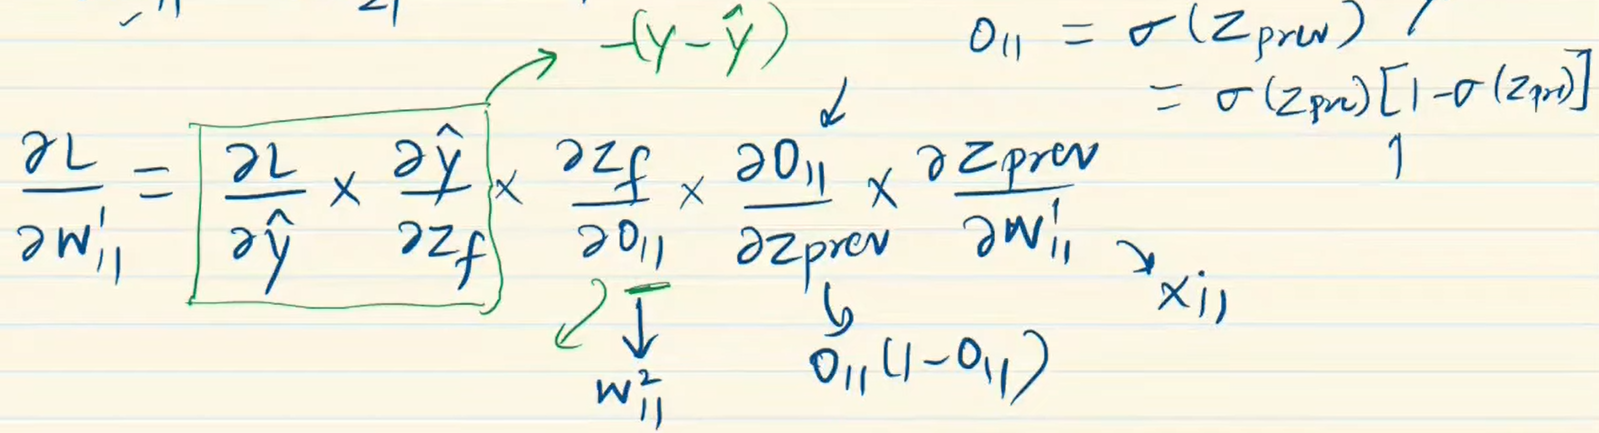 -(y-ŷ)
O₁₁ = σ(Zprev)
= σ(Zprv)[1-σ(Zprv)]
∂L/∂W¹₁₁ = ∂L/∂ŷ × ∂ŷ/∂Zf × ∂Zf/∂O₁₁ × ∂O₁₁/∂Zprev × ∂Zprev/∂W¹₁₁
xi₁
W²₁₁
O₁₁(1-O₁₁)